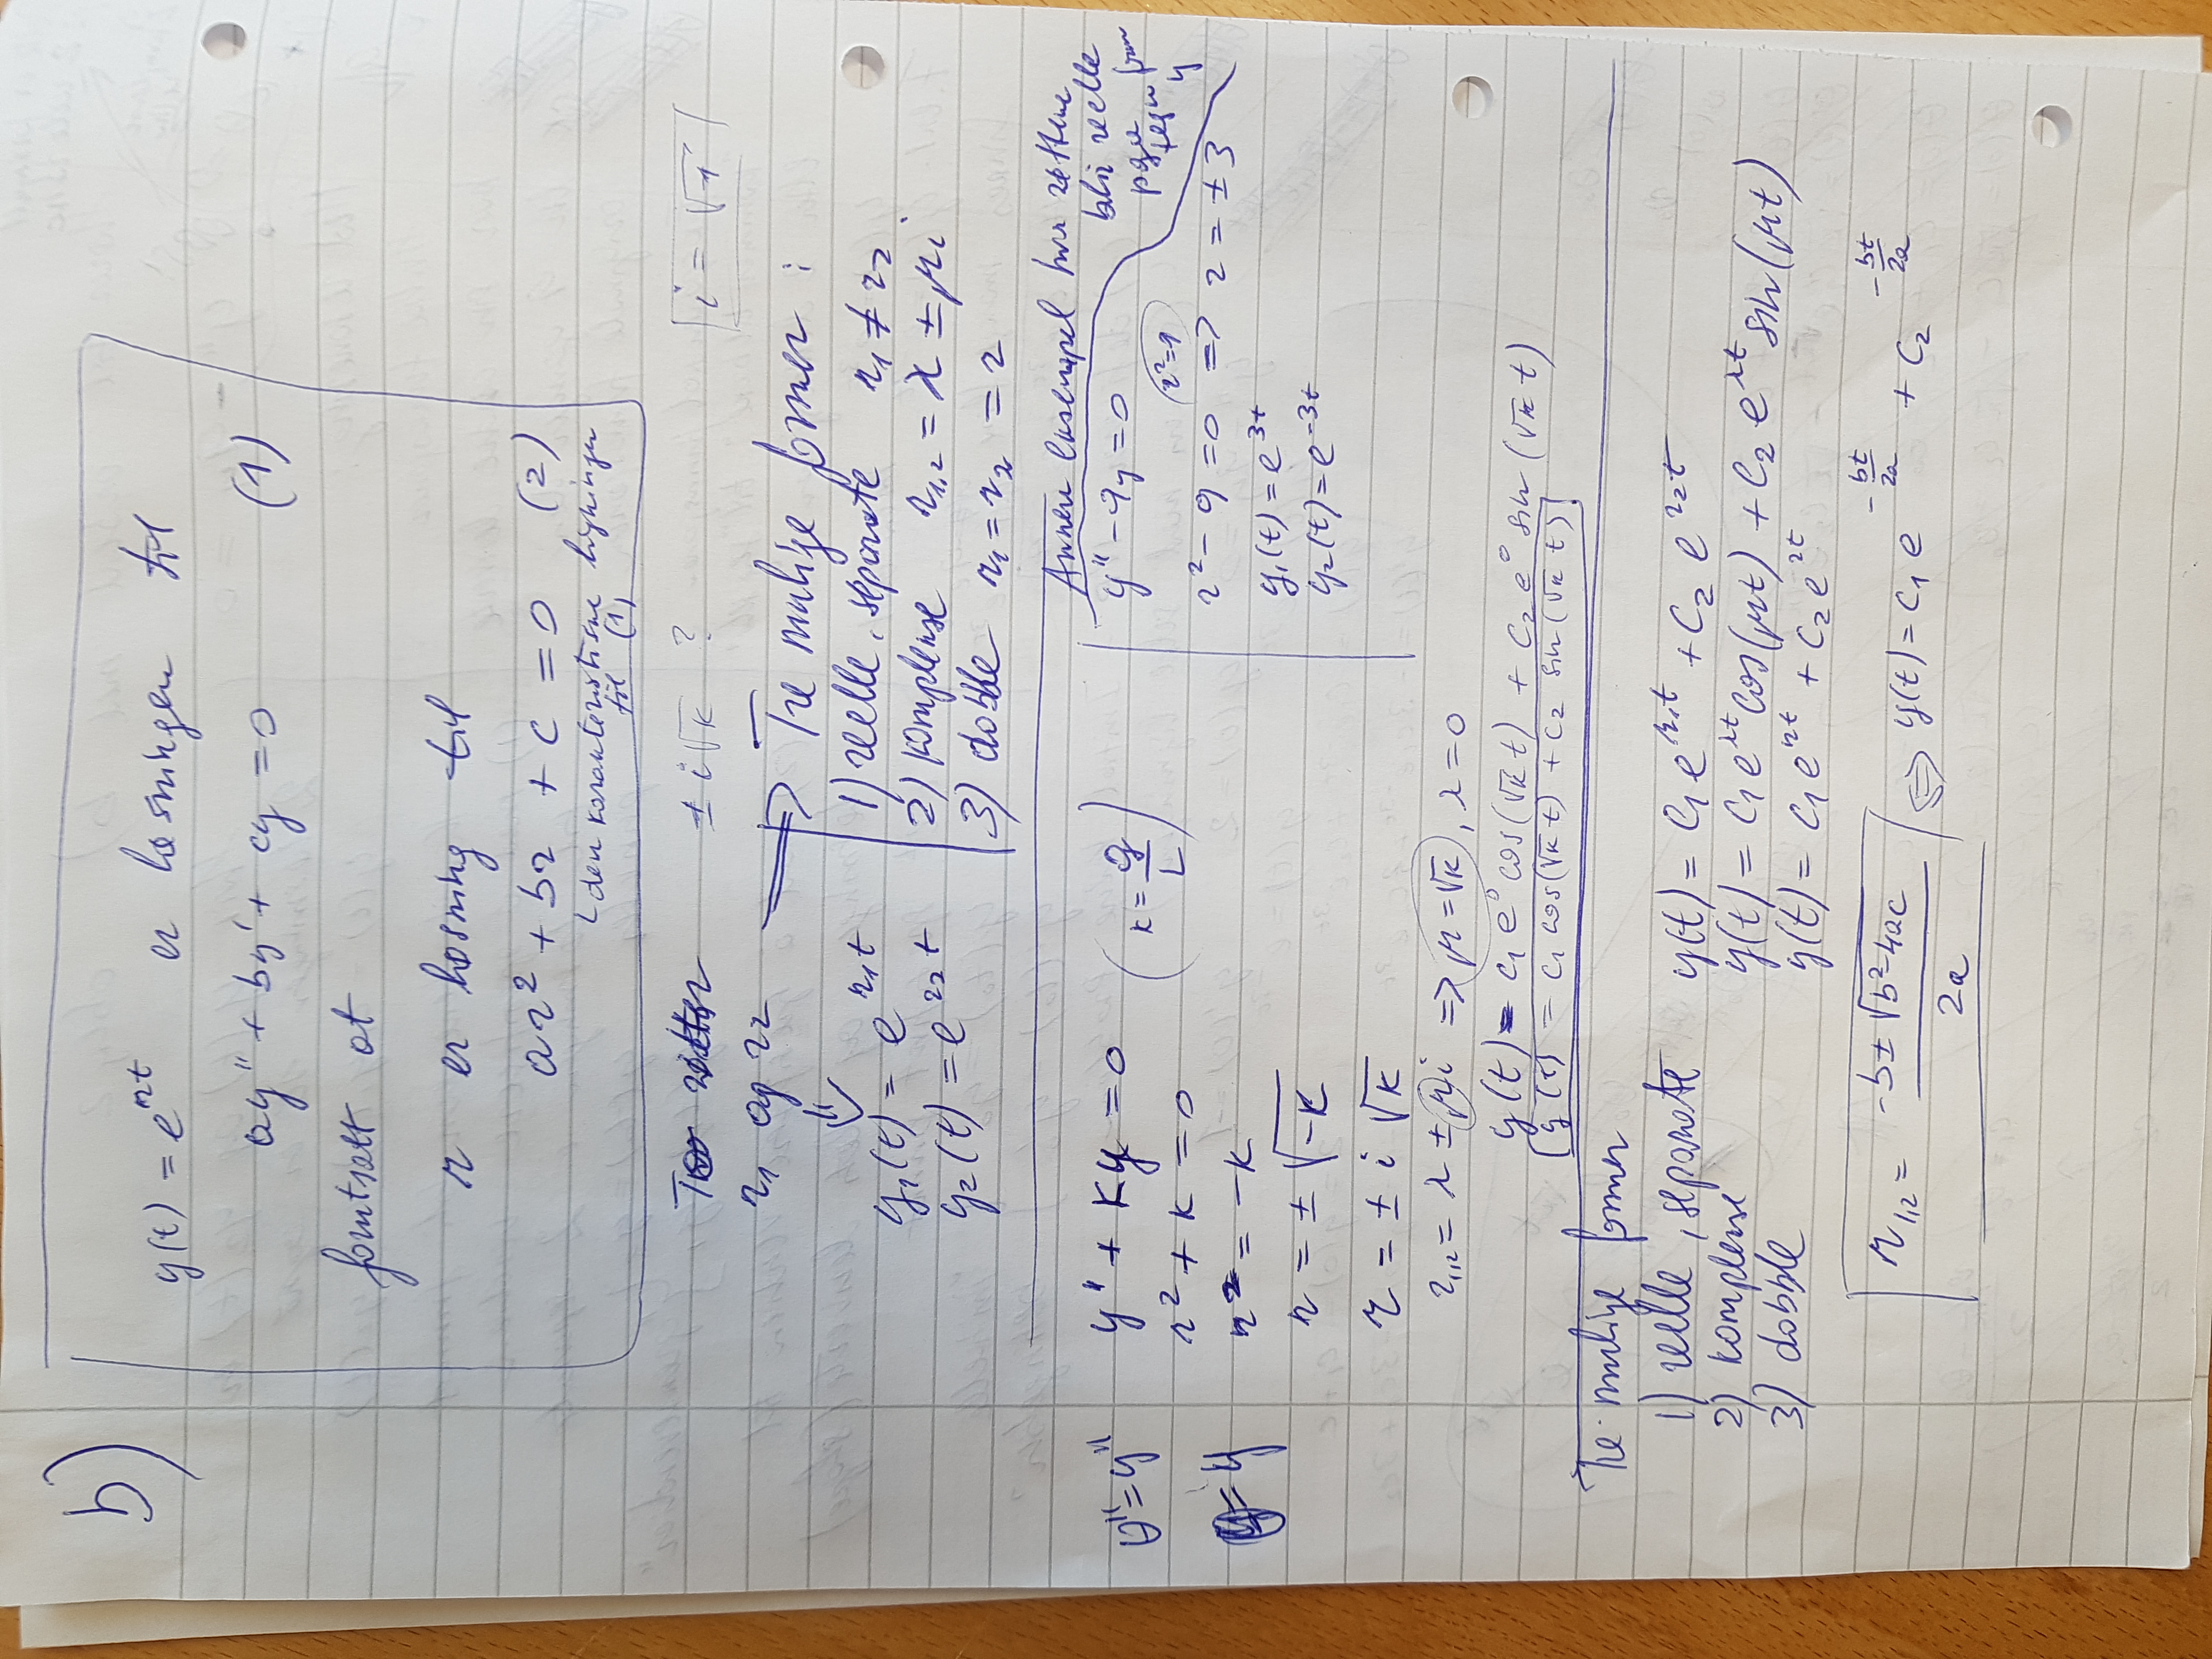 b)
y(t) = e^{rt} er løsningen til
ay'' + by' + cy = 0 (1)
forutsatt at
r er løsning til
ar² + br + c = 0 (2)
den karakteristiske ligningen
til (1)
To røtter ± i√k ? i = √-1
r₁ og r₂ => Tre mulige former :
1) reelle, separate r₁ ≠ r₂
2) komplekse r₁,₂ = λ ± μi
3) dobble r₁ = r₂ = r
y₁(t) = e^{r₁t}
y₂(t) = e^{r₂t}
θ'' = y''
θ = y
y'' + ky = 0 (k = g/L)
r² + k = 0
r² = -k
r = ± √-k
r = ± i √k
r₁,₂ = λ ± μi => μ = √k, λ = 0
y(t) = c₁ e⁰ cos(√k t) + c₂ e⁰ sin(√k t)
y(t) = c₁ cos(√k t) + c₂ sin(√k t)
Annen eksempel hvor røttene
blir reelle
pga
tegn fran
y
y'' - 9y = 0
r² = 9
r² - 9 = 0 => r = ± 3
y₁(t) = e^{3t}
y₂(t) = e^{-3t}
Tre mulige former
1) reelle, separate y(t) = c₁ e^{r₁t} + c₂ e^{r₂t}
2) komplekse y(t) = c₁ e^{λt} cos(μt) + c₂ e^{λt} sin(μt)
3) dobble y(t) = c₁ e^{rt} + c₂ e^{rt}
r₁,₂ = (-b ± √b²-4ac)/2a <=> y(t) = c₁ e^{-bt/2a} + c₂ ^{-bt/2a}